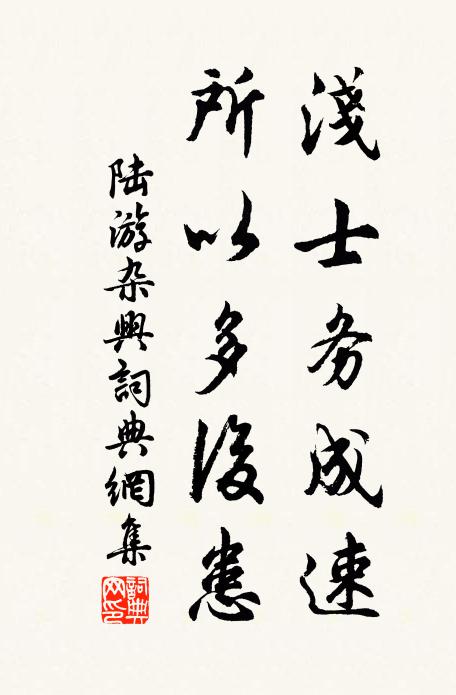 淺士务成速
所以多後患
陆游杂興詞典網集
詞典网印